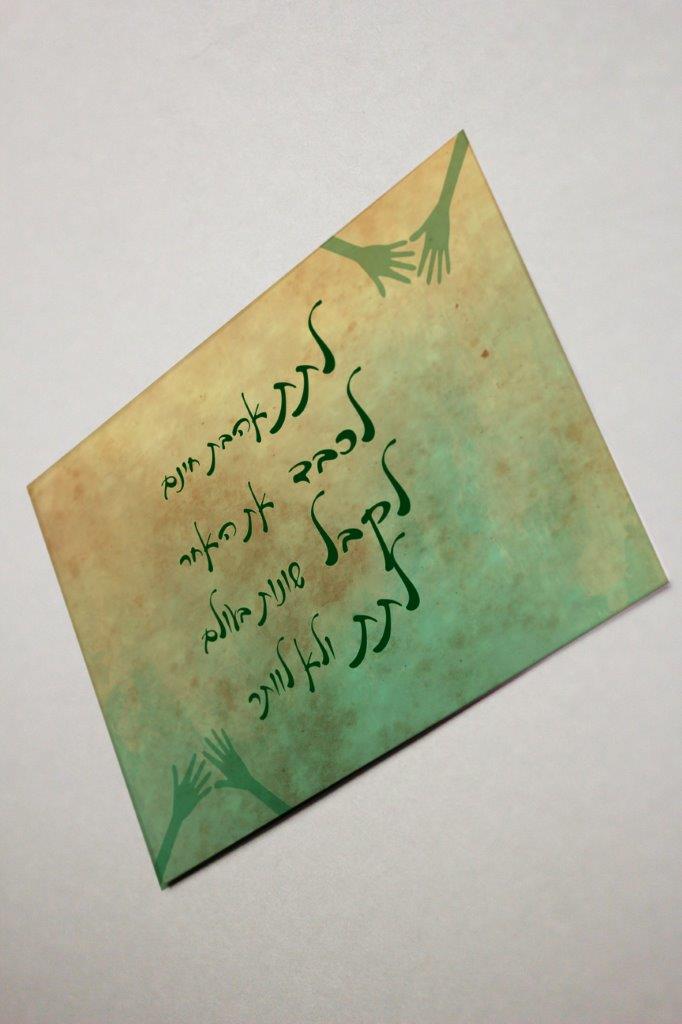 לתת אהבת חינם
לכבד את האחר
לקבל שונות בעולם
לתת ולא לוותר